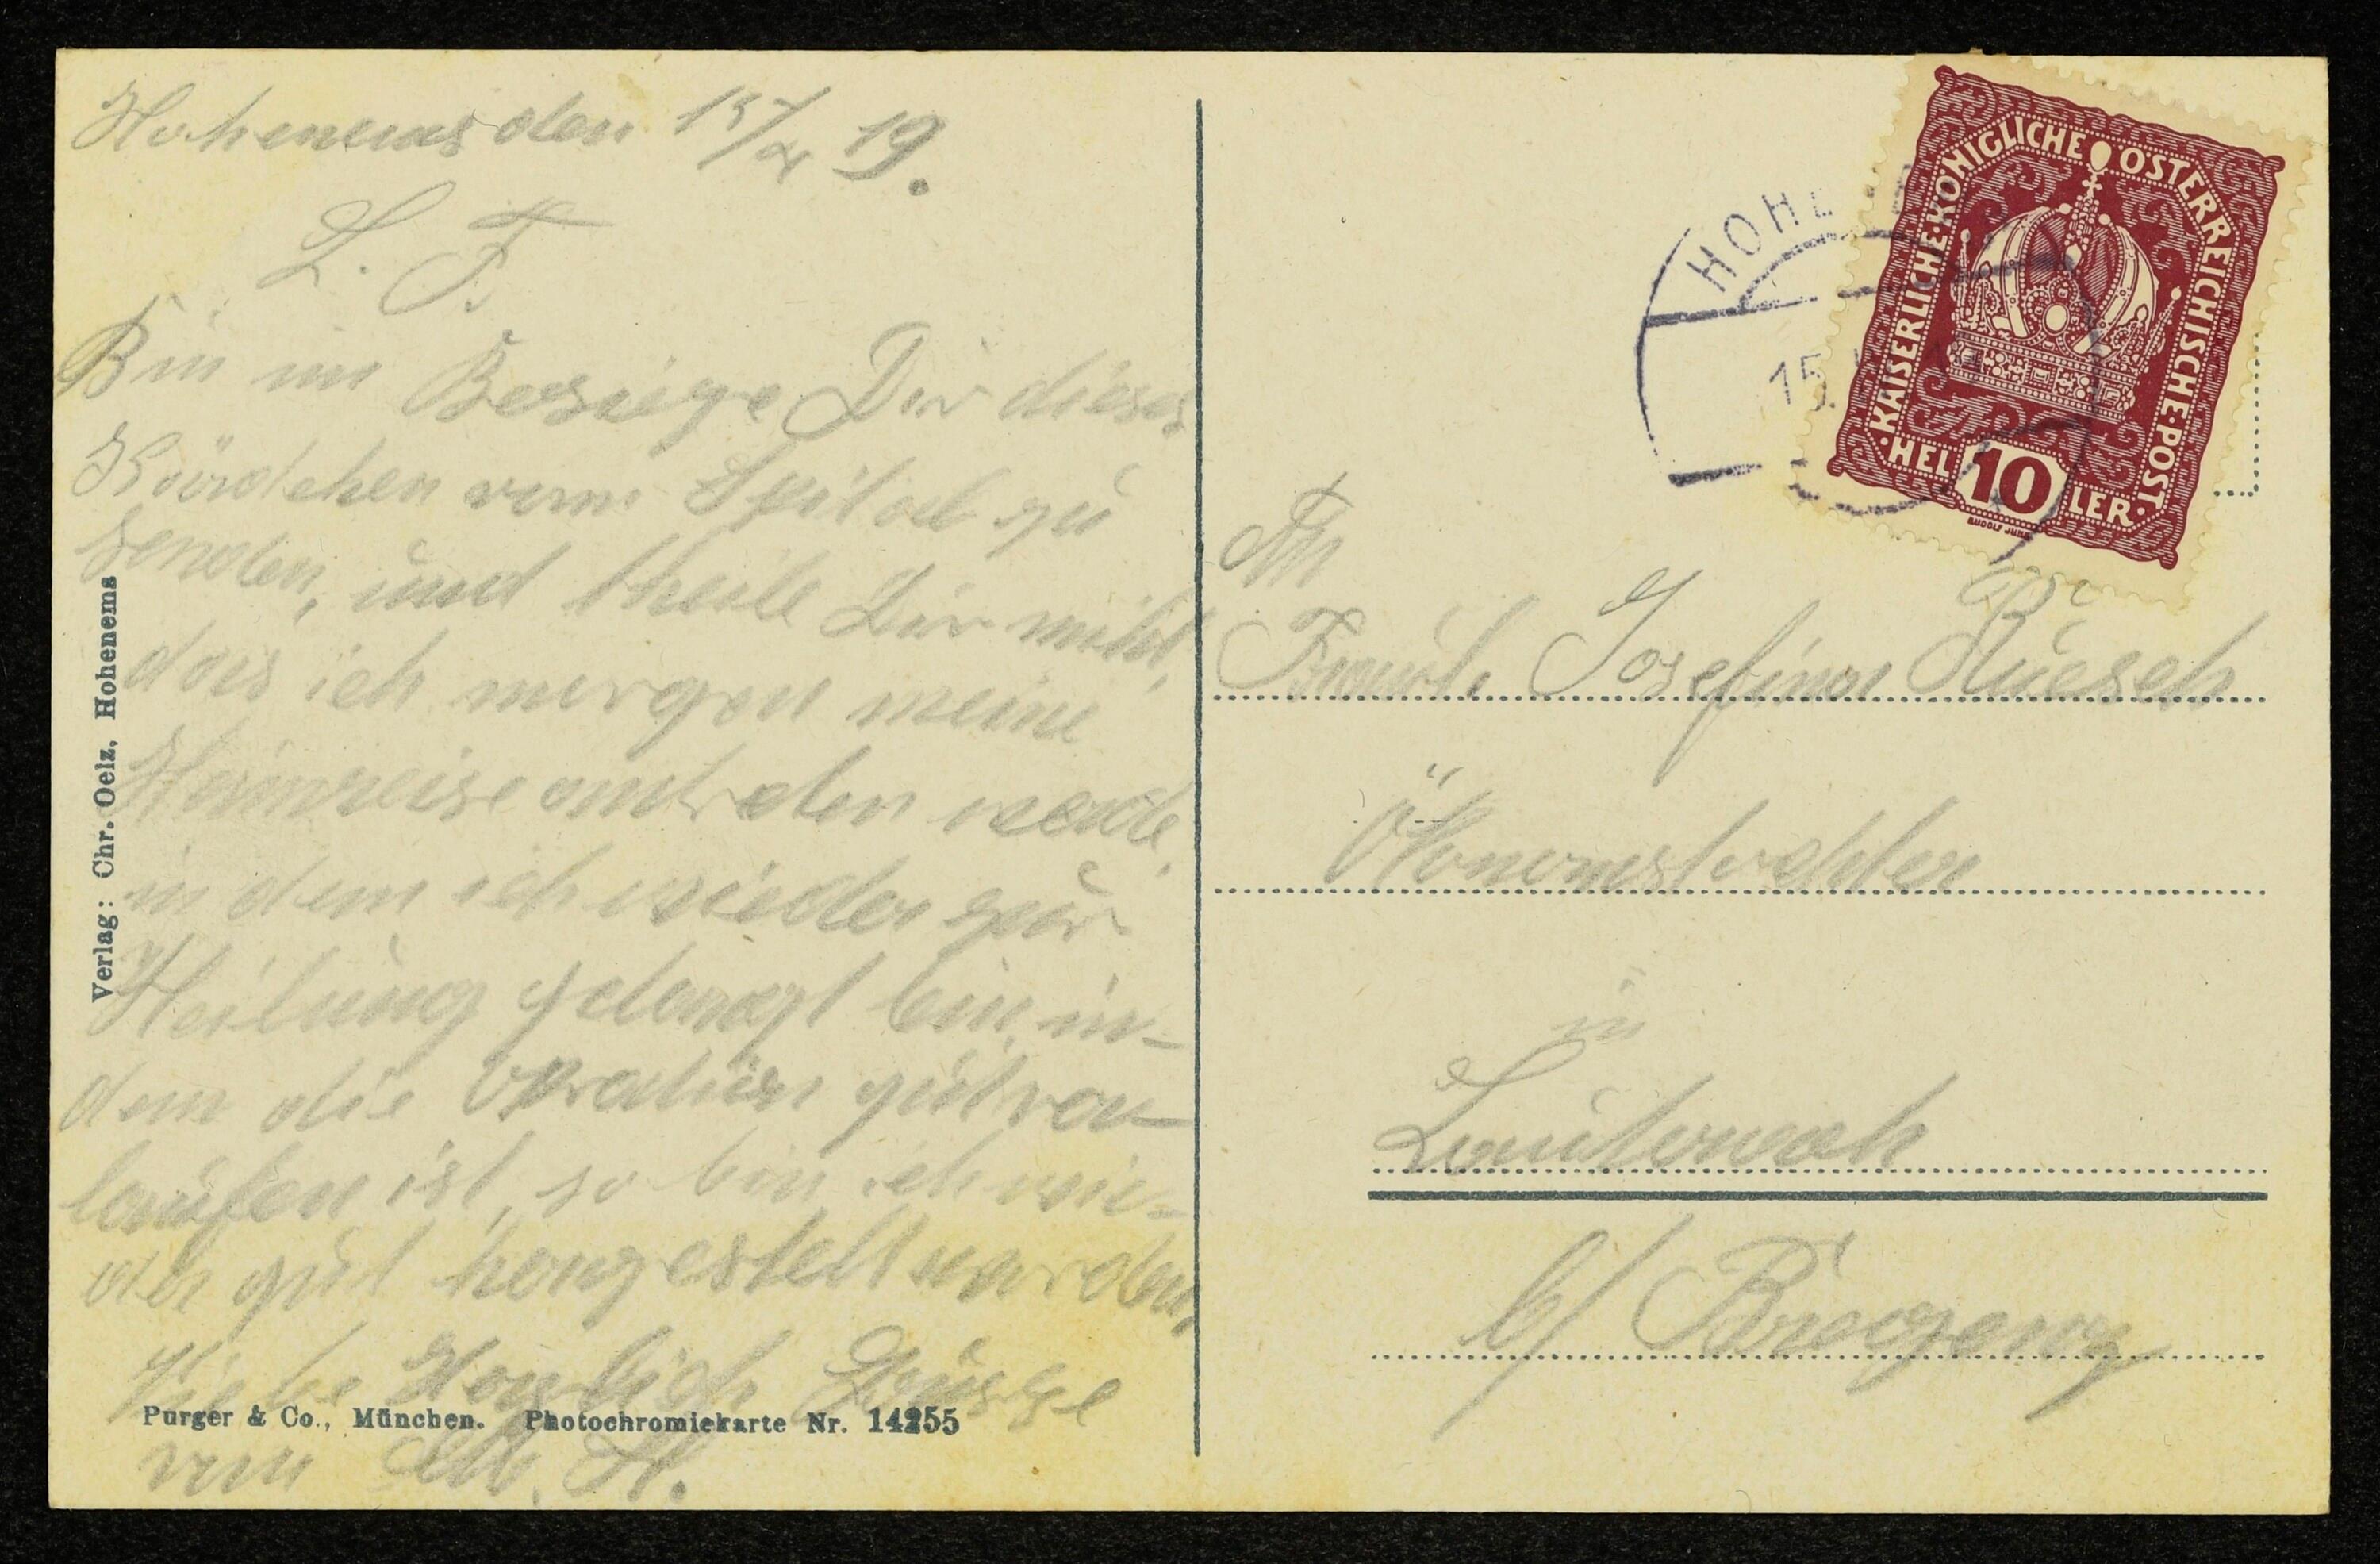 Hohenems den 15/2 19.
L. F.
Bin im Besitze Dir dieses
Kärtchen vom Spital zu
senden, und theile Dir mitt,
das ich morgen meine
Heimreise antreten werde,
in dem ich wieder zur
Heilung gelangt bin, in-
dem die Opration gut ver-
laufen ist, so bin ich wie-
der gut hergestellt worden,
Herzlich Grüsse
vom M. H.
Verlag: Chr. Oelz, Hohenems
Purger & Co., München. Photochromiekarte Nr. 14255
HOHENEMS
15.
KAISERLICHE·KÖNIGLICHE ÖSTERREICHISCHE·POST
HELLER
10
RUDOLF JUNK
An
Fräul. Josefina Rüesch
Ökonomstochter
in
Lauterach
b/ Bregenz